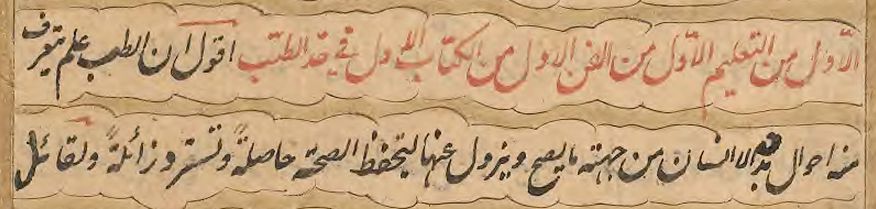 الاول من التعليم الاول من الفن الاول من الكتاب الاول في حد الطب اقول ان الطب علم يتعرف
منه احوال بدن الانسان من جهة ما يصح ويزول عنها ليتحفظ الصحة حاصلةً وتسترد زائلةً ولقائل